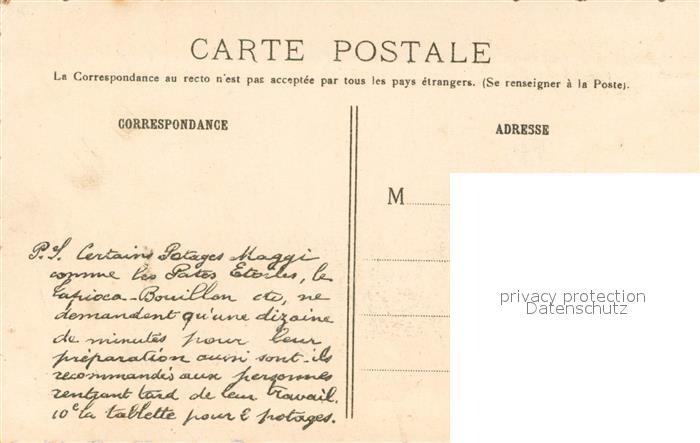 CARTE POSTALE
La Correspondance au recto n'est pas acceptée par tous les pays étrangers. (Se renseigner à la Poste).
CORRESPONDANCE
P.S. Certains Potages Maggi
comme les Pates Etoiles, le
Tapioca-Bouillon etc, ne
demandent qu'une dizaine
de minutes pour leur
préparation aussi sont-ils
recommandés aux personnes
rentrant tard de leur travail.
10c la tablette pour 2 potages.
ADRESSE
M
privacy protection
Datenschutz